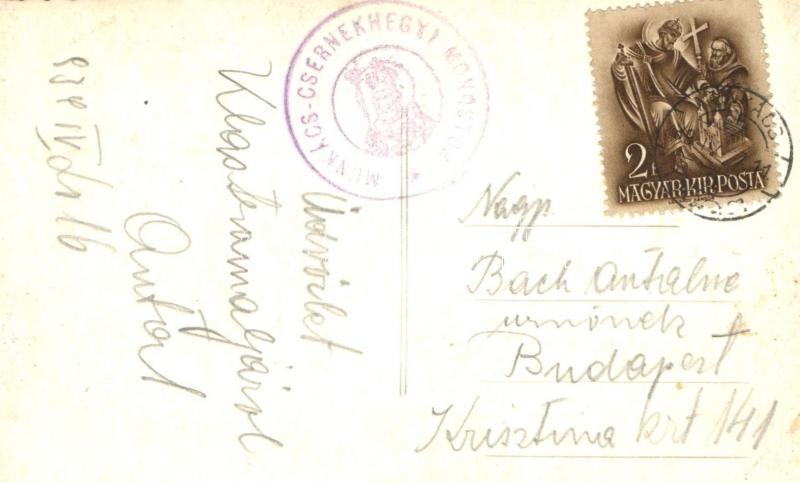 MUNKÁCS-CSERNEKHEGYI MONOSTOR
2f
MAGYAR·KIR·POSTA
Üdvözlet
Klastromaljárol
Antal
939 IV. 16
Nagy
Bach Antalné
urnőnek
Budapest
Krisztina krt 141